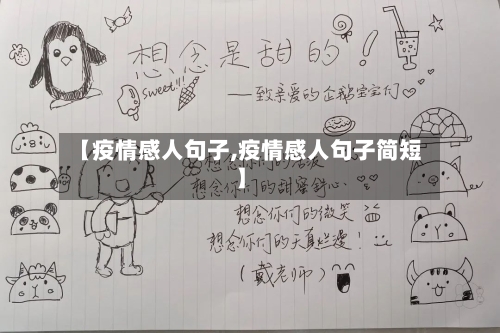 想念是甜的！
sweet!!!
——致亲爱的企鹅宝宝们
【疫情感人句子,疫情感人句子简短
】
想念你们的甜蜜舒心
想念你们的微笑
想念你们的天真烂漫！
（戴老师）